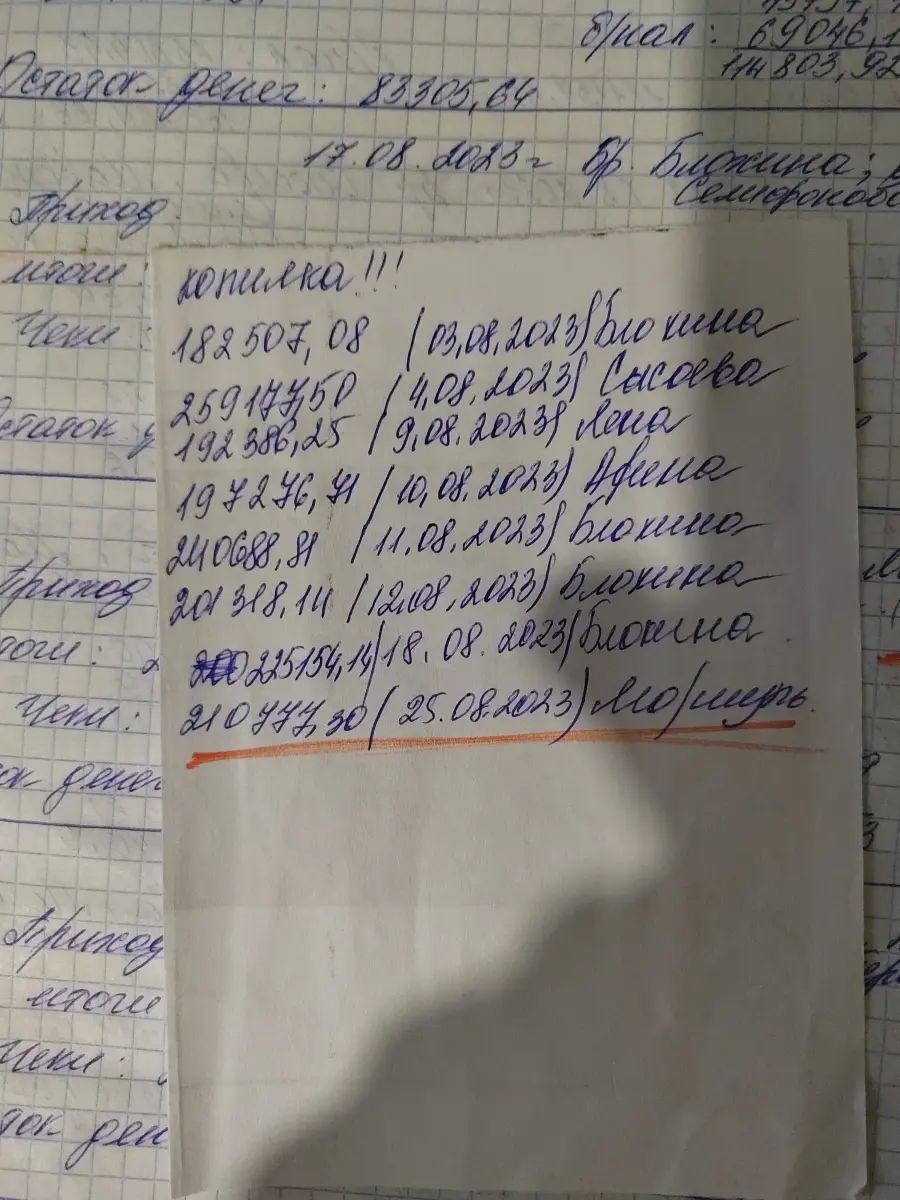 б/нал: 69046,1
114803,92
Остаток денег: 83305,64
17.08.2023г Бр. Блохина;
Семифоново
Приход
итоги:
Чеки:
копилка!!!
182507,08 (03,08,2023) Блохина
259177,50 (4,08,2023) Сысоева
192386,25 (9,08,2023) Лена
197276,71 (10,08,2023) Афина
240688,81 (11,08,2023) Блохина
201318,14 (12,08,2023) Блохина
225154,14 (18.08.2023) Блохина
210777,30 (25.08.2023)
Приход
Чеки:
Приход
итоги
Чеки: